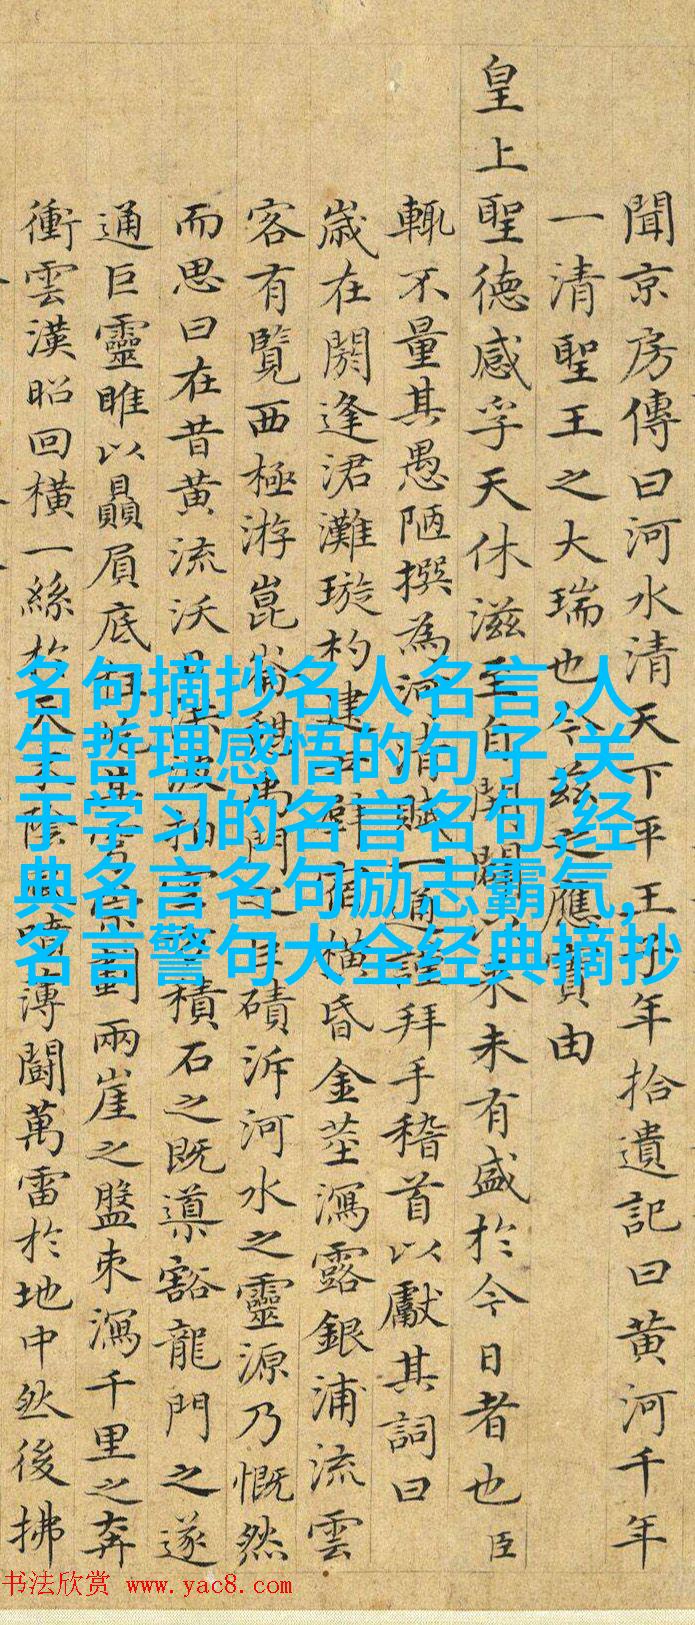 聞京房傳曰河水清天下平王子年拾遺記曰黃河千年
一清聖王之大瑞也今茲之應實由
皇上聖德感孚天休滋至自開闢以來未有盛於今日者也臣
輒不量其愚陋撰為河清賦一通謹拜手稽首以獻其詞曰
歲在閼逢涒灘璇杓建宿橫昏金莖瀉露銀浦流雲
客有覽西極游崑崙禹門之巨磧泝河水之靈源乃慨然
而思曰在昔黃流沃日洪波拍積石之既導豁龍門之遂
通巨靈雎以贔屓底柱屹其劃兩崖之盤束瀉千里之奔
衝雲漢昭回橫一絲於天陰風噴薄鬭萬雷於地中然後拂
名句摘抄名人名言,人
生哲理感悟的句子,关
于学习的名言名句,经
典名言名句励志霸气,
名言警句大全经典摘抄
书法欣赏 www.yac8.com